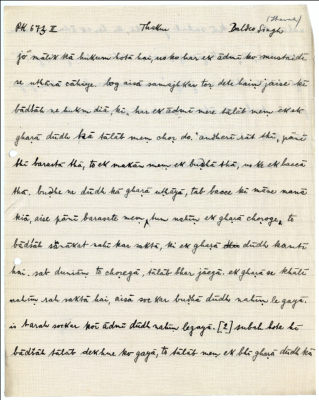 (Hansā)
PK 672 II Thakur Baldeo Singh
jo mālik kā hukum hotā hai, us ko har ek ādmī ko mustaide
se uṭhānā cāhiye. log aisā samajhkar toṛ dete haiṃ jaise ki
bādśāh ne hukm diā ki, har ek ādmī mere tālāb meṃ ek ek
ghaṛā dūdh tālāb meṃ choṛ do. andherī rāt thī, pānī
thī barastā thā, to ek makān meṃ ek buḍhā thā, us ke ek baccā
thā. buḍhe ne dūdh kā ghaṛā uṭhāyā, tab bacce kī māne manā
kiā, aise pānī barasete meṃ, tum nahīṃ ek ghaṛā choṛoge, to
bādśāh sānukat nahī kar saktā, ki ek ghaṛā dūdh kamtī
hai. sat duniāṃ to choṛegā, tālāb bhar jāegā. ek ghaṛā se khālī
nahīṃ rah saktā hai, aisā soc kar buḍhā dūdh nahīṃ le gayā.
is tarah sockar koī ādmī dūdh nahīṃ legayā. [2] subah hote hī
bādśāh tālāb dekhne ko gayā, to tālāb meṃ ek bhī ghaṛā dūdh kā